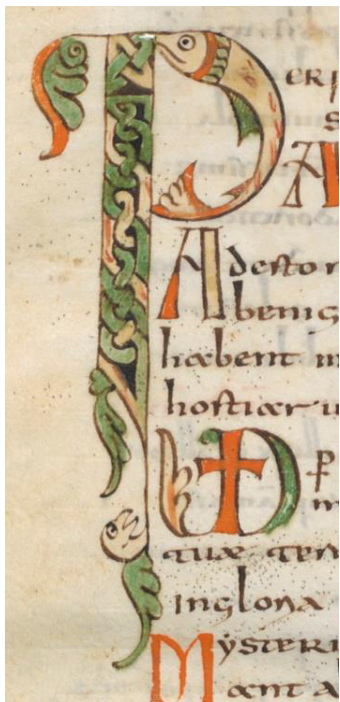 PERI
S
A
Adestor
benig
habent in
hostiar u
VD P
m
quae tem
ingloria
Mysteri